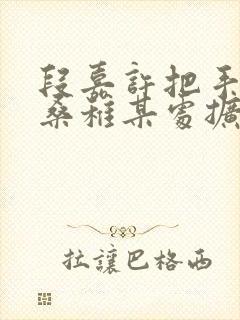 段嘉許把手
桑稚某處擴
拉讓巴格西